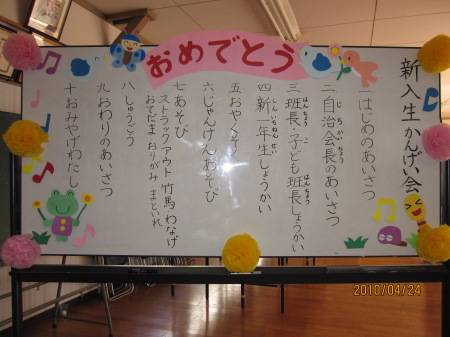 おめでとう
新入生かんげい会
一はじめのあいさつ
二自治会長のあいさつ
三班長・子ども班長しょうかい
四新一年生しょうかい
五おやくそく
六じゃんけんあそび
七あそび
ストラックアウト 竹馬 わなげ
おてだま おりがみ まといれ
八しゅうごう
九おわりのあいさつ
十おみやげわたし
2010/04/24